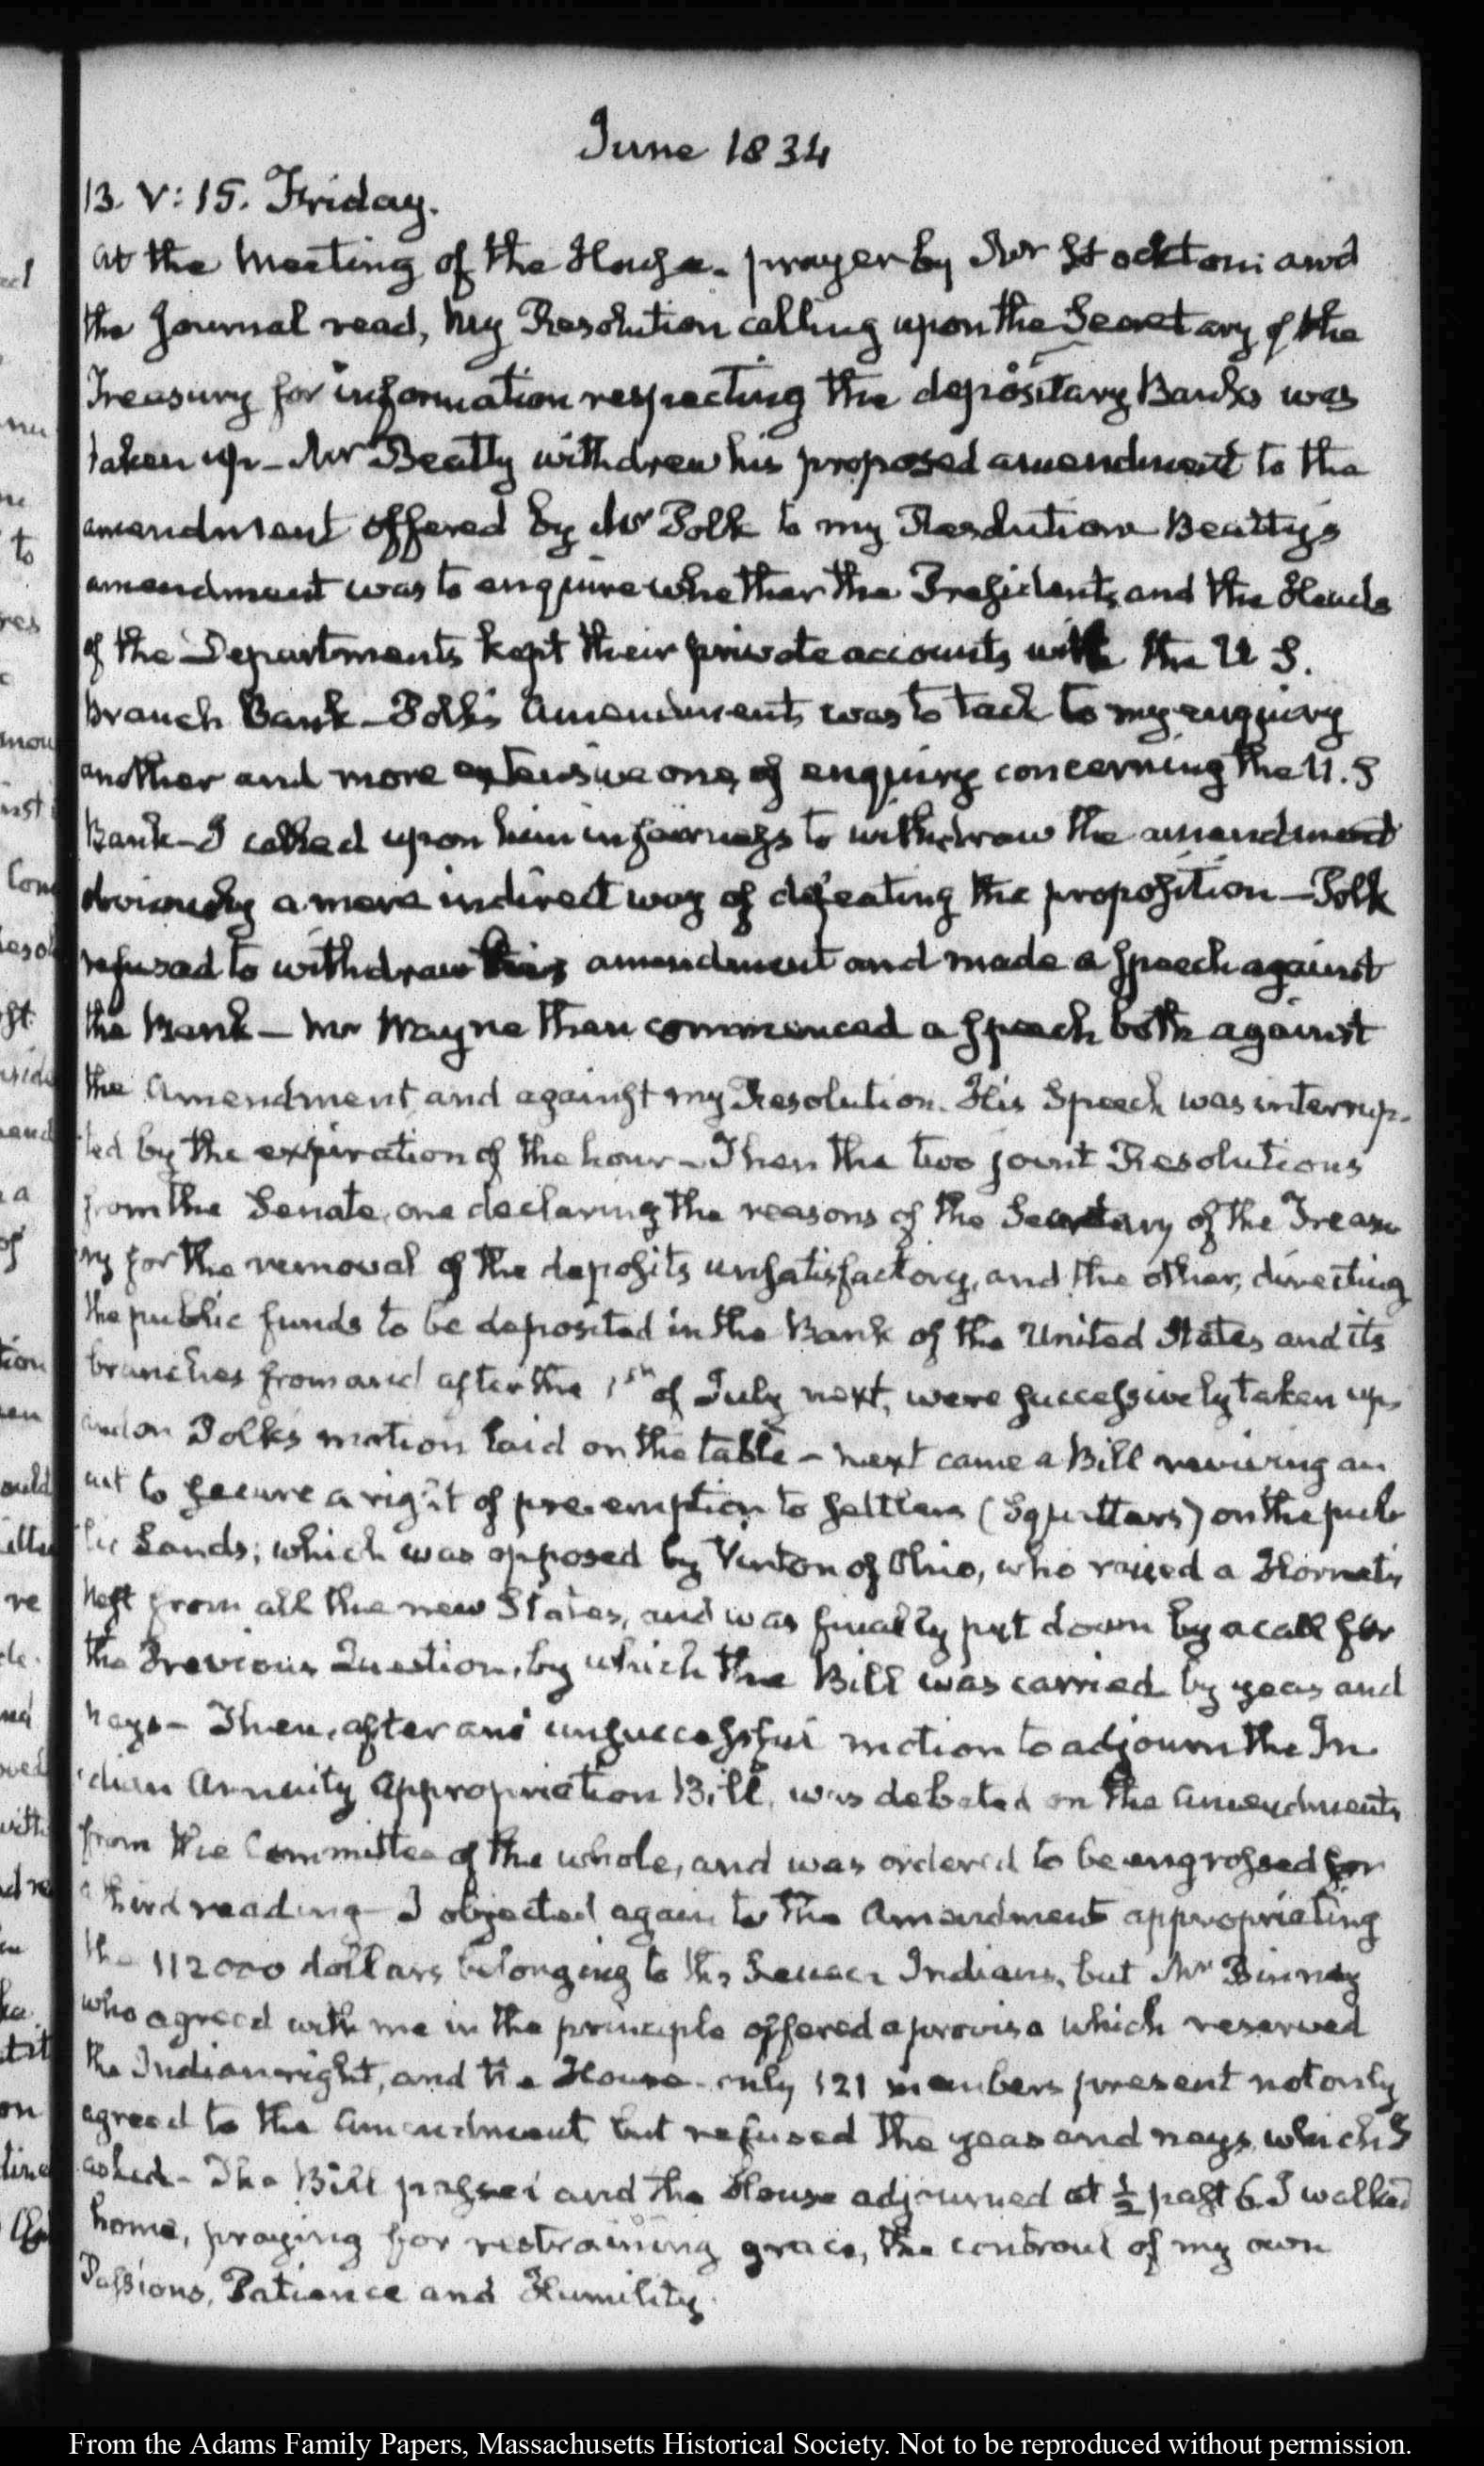 June 1834
13. V: 15. Friday.
At the Meeting of the House. prayer by Mr Stockton and
the Journal read, my Resolution calling upon the Secretary of the
Treasury for information respecting the depositary Banks was
taken up – Mr Beatty withdrew his proposed amendment to the
amendment offered by Mr Polk to my Resolution Beatty's
amendment was to enquire whether the Presidents and the Heads
of the Departments kept their private accounts with the U S.
branch Bank – Polk's Amendment was to tack to my enquiry
another and more extensive one, of enquiry concerning the U. S
Bank – I called upon him in fairness to withdraw the amendment
obviously a mere indirect way of defeating the proposition – Polk
refused to withdraw his amendment and made a speech against
the Bank – Mr Wayne then commenced a speech both against
the Amendment and against my Resolution. His Speech was interrup-
ted by the expiration of the hour – Then the two joint Resolutions
from the Senate, one declaring the reasons of the Secretary of the Treasu
ry for the removal of the deposits unsatisfactory, and the other, directing
the public funds to be deposited in the Bank of the United States and its
branches from and after the 1st of July next, were successively taken up,
and on Polk's motion laid on the table – next came a Bill reviving an
act to secure a right of pre-emption to settlers (Squatters) on the pub
lic Lands; which was opposed by Vinton of Ohio, who raised a Hornets
nest from all the new States, and was finally put down by a call for
the Previous Question, by which the Bill was carried by yeas and
nays – Then, after an unsuccessful motion to adjourn the In
dian Annuity Appropriation Bill, was debated on the Amendments
from the Committee of the whole, and was ordered to be engrossed for
a third reading – I objected again to the Amendment appropriating
the 112000 dollars belonging to the Seneca Indians, but Mr Binney
who agreed with me in the principle offered a proviso which reserved
the Indian right, and the House – only 121 members present not only
agreed to the Amendment but refused the yeas and nays which I
asked – The Bill passed and the House adjourned at ½ past 6. I walked
home, praying for restraining grace, the controul of my own
Passions, Patience and Humility.
From the Adams Family Papers, Massachusetts Historical Society. Not to be reproduced without permission.